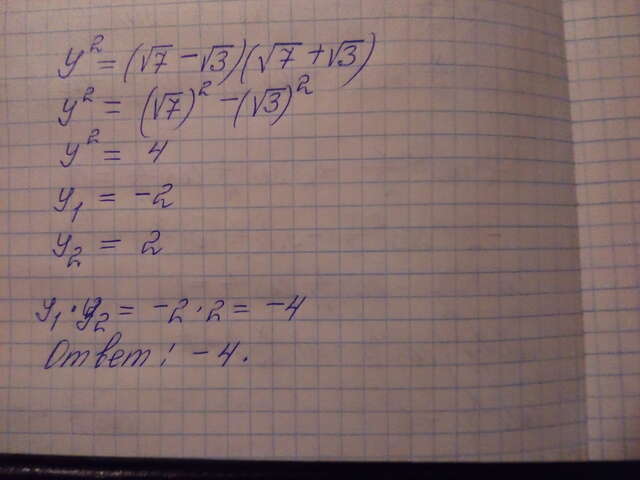 y² = (√7 − √3)(√7 + √3)
y² = (√7)² − (√3)²
y² = 4
y₁ = −2
y₂ = 2
y₁ · y₂ = −2 · 2 = −4
Ответ: −4.